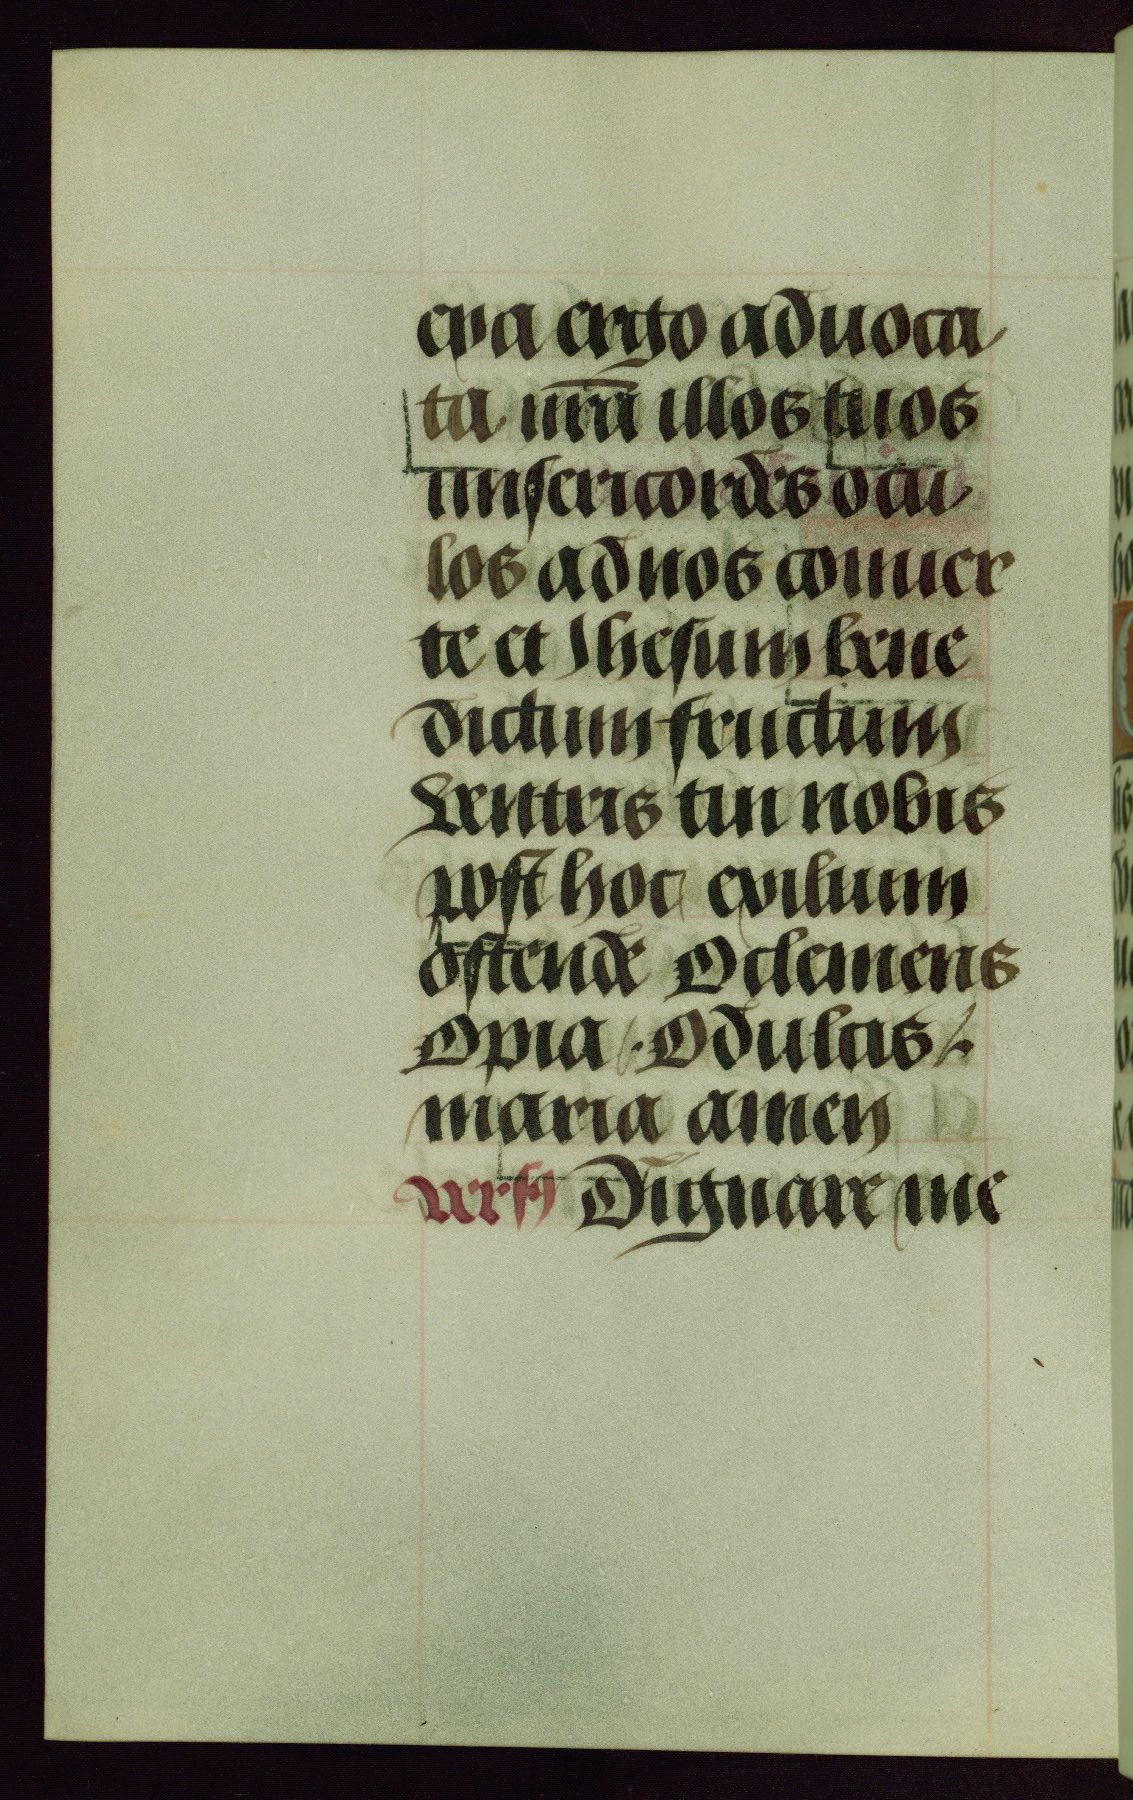 eya ergo aduoca
ta nr̄a illos tuos
misericordes ocu
los ad nos conuer
te et Ihesum bene
dictum fructum
Ventris tui nobis
post hoc exilium
ostende O clemens
O pia /. O dulcis /.
maria amen
Vers9 Dignare me